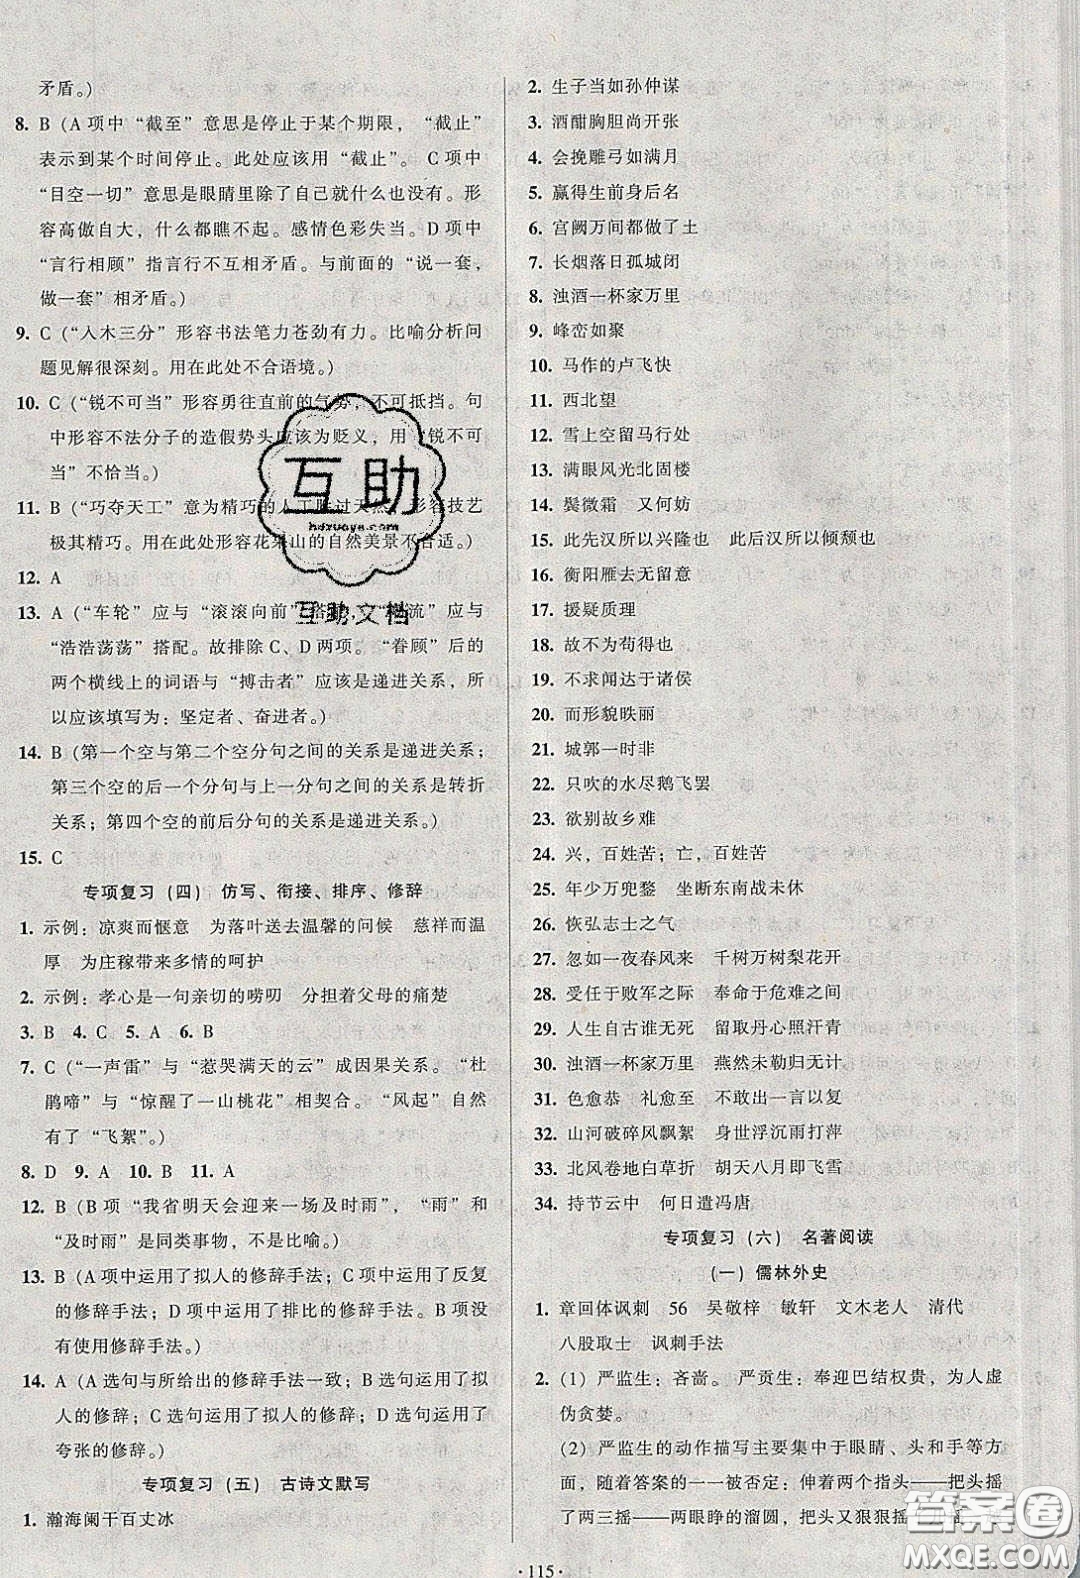 矛盾。)
8. B (A 项中“截至”意思是停止于某个期限，“截止”
表示到某个时间停止。此处应该用“截止”。 C 项中
“目空一切”意思是眼睛里除了自己就什么也没有。形
容高傲自大，什么都瞧不起。感情色彩失当。D 项中
“言行相顾”指言行不互相矛盾。与前面的“说一套，
做一套”相矛盾。)
9. C (“入木三分”形容书法笔力苍劲有力。比喻分析问
题见解很深刻。用在此处不合语境。)
10. C (“锐不可当”形容勇往直前的气势，不可抵挡。句
中形容不法分子的造假势头应该为贬义，用“锐不可
当”不恰当。)
11. B (“巧夺天工”意为精巧的人工胜过天然，形容技艺
极其精巧。用在此处形容花果山的自然美景不合适。)
12. A
13. A (“车轮”应与“滚滚向前”搭配，“潮流”应与
“浩浩荡荡”搭配。故排除 C、D 两项。“眷顾”后的
两个横线上的词语与“搏击者”应该是递进关系，所
以应该填写为：坚定者、奋进者。)
14. B (第一个空与第二个空分句之间的关系是递进关系；
第三个空的后一分句与上一分句之间的关系是转折
关系；第四个空的前后分句的关系是递进关系。)
15. C
专项复习（四） 仿写、衔接、排序、修辞
1. 示例：凉爽而惬意 为落叶送去温馨的问候 慈祥而温
厚 为庄稼带来多情的呵护
2. 示例：孝心是一句亲切的唠叨 分担着父母的痛楚
3. B 4. C 5. A 6. B
7. C (“一声雷”与“惹哭满天的云”成因果关系。“杜
鹃啼”与“惊醒了一山桃花”相契合。“风起”自然
有了“飞絮”。)
8. D 9. A 10. B 11. A
12. B (B 项“我省明天会迎来一场及时雨”，“雨”和
“及时雨”是同类事物，不是比喻。)
13. B (A 项中运用了拟人的修辞手法；C 项中运用了反复
的修辞手法；D 项中运用了排比的修辞手法。B 项没
有使用修辞手法。)
14. A (A 选句与所给出的修辞手法一致；B 选句运用了拟
人的修辞；C 选句运用了拟人的修辞；D 选句运用了
夸张的修辞。)
专项复习（五） 古诗文默写
1. 瀚海阑干百丈冰
2. 生子当如孙仲谋
3. 酒酣胸胆尚开张
4. 会挽雕弓如满月
5. 赢得生前身后名
6. 宫阙万间都做了土
7. 长烟落日孤城闭
8. 浊酒一杯家万里
9. 峰峦如聚
10. 马作的卢飞快
11. 西北望
12. 雪上空留马行处
13. 满眼风光北固楼
14. 鬓微霜 又何妨
15. 此先汉所以兴隆也 此后汉所以倾颓也
16. 衡阳雁去无留意
17. 援疑质理
18. 故不为苟得也
19. 不求闻达于诸侯
20. 而形貌昳丽
21. 城郭一时非
22. 只吹的水尽鹅飞罢
23. 欲别故乡难
24. 兴，百姓苦；亡，百姓苦
25. 年少万兜鍪 坐断东南战未休
26. 恢弘志士之气
27. 忽如一夜春风来 千树万树梨花开
28. 受任于败军之际 奉命于危难之间
29. 人生自古谁无死 留取丹心照汗青
30. 浊酒一杯家万里 燕然未勒归无计
31. 色愈恭 礼愈至 不敢出一言以复
32. 山河破碎风飘絮 身世浮沉雨打萍
33. 北风卷地白草折 胡天八月即飞雪
34. 持节云中 何日遣冯唐
专项复习（六） 名著阅读
(一) 儒林外史
1. 章回体讽刺 56 吴敬梓 敏轩 文木老人 清代
八股取士 讽刺手法
2. (1) 严监生：吝啬。 严贡生：奉迎巴结权贵，为人虚
伪贪婪。
(2) 严监生的动作描写主要集中于眼睛、头和手等方
面。随着答案的一一被否定：伸着两个指头——把头摇
了两三摇——两眼睁的溜圆，把头又狠狠摇
互助
hdzuoye.com
互助文档
答案圈
MXQE.COM
·115·